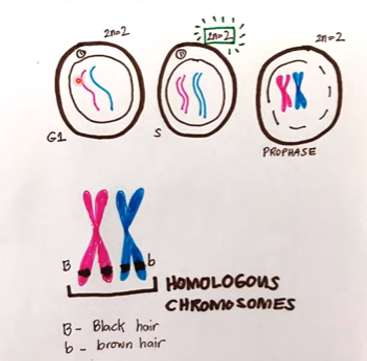 2n=2
2n=2
2n=2
G1
S
PROPHASE
B
b
HOMOLOGOUS
CHROMOSOMES
B - Black hair
b - brown hair